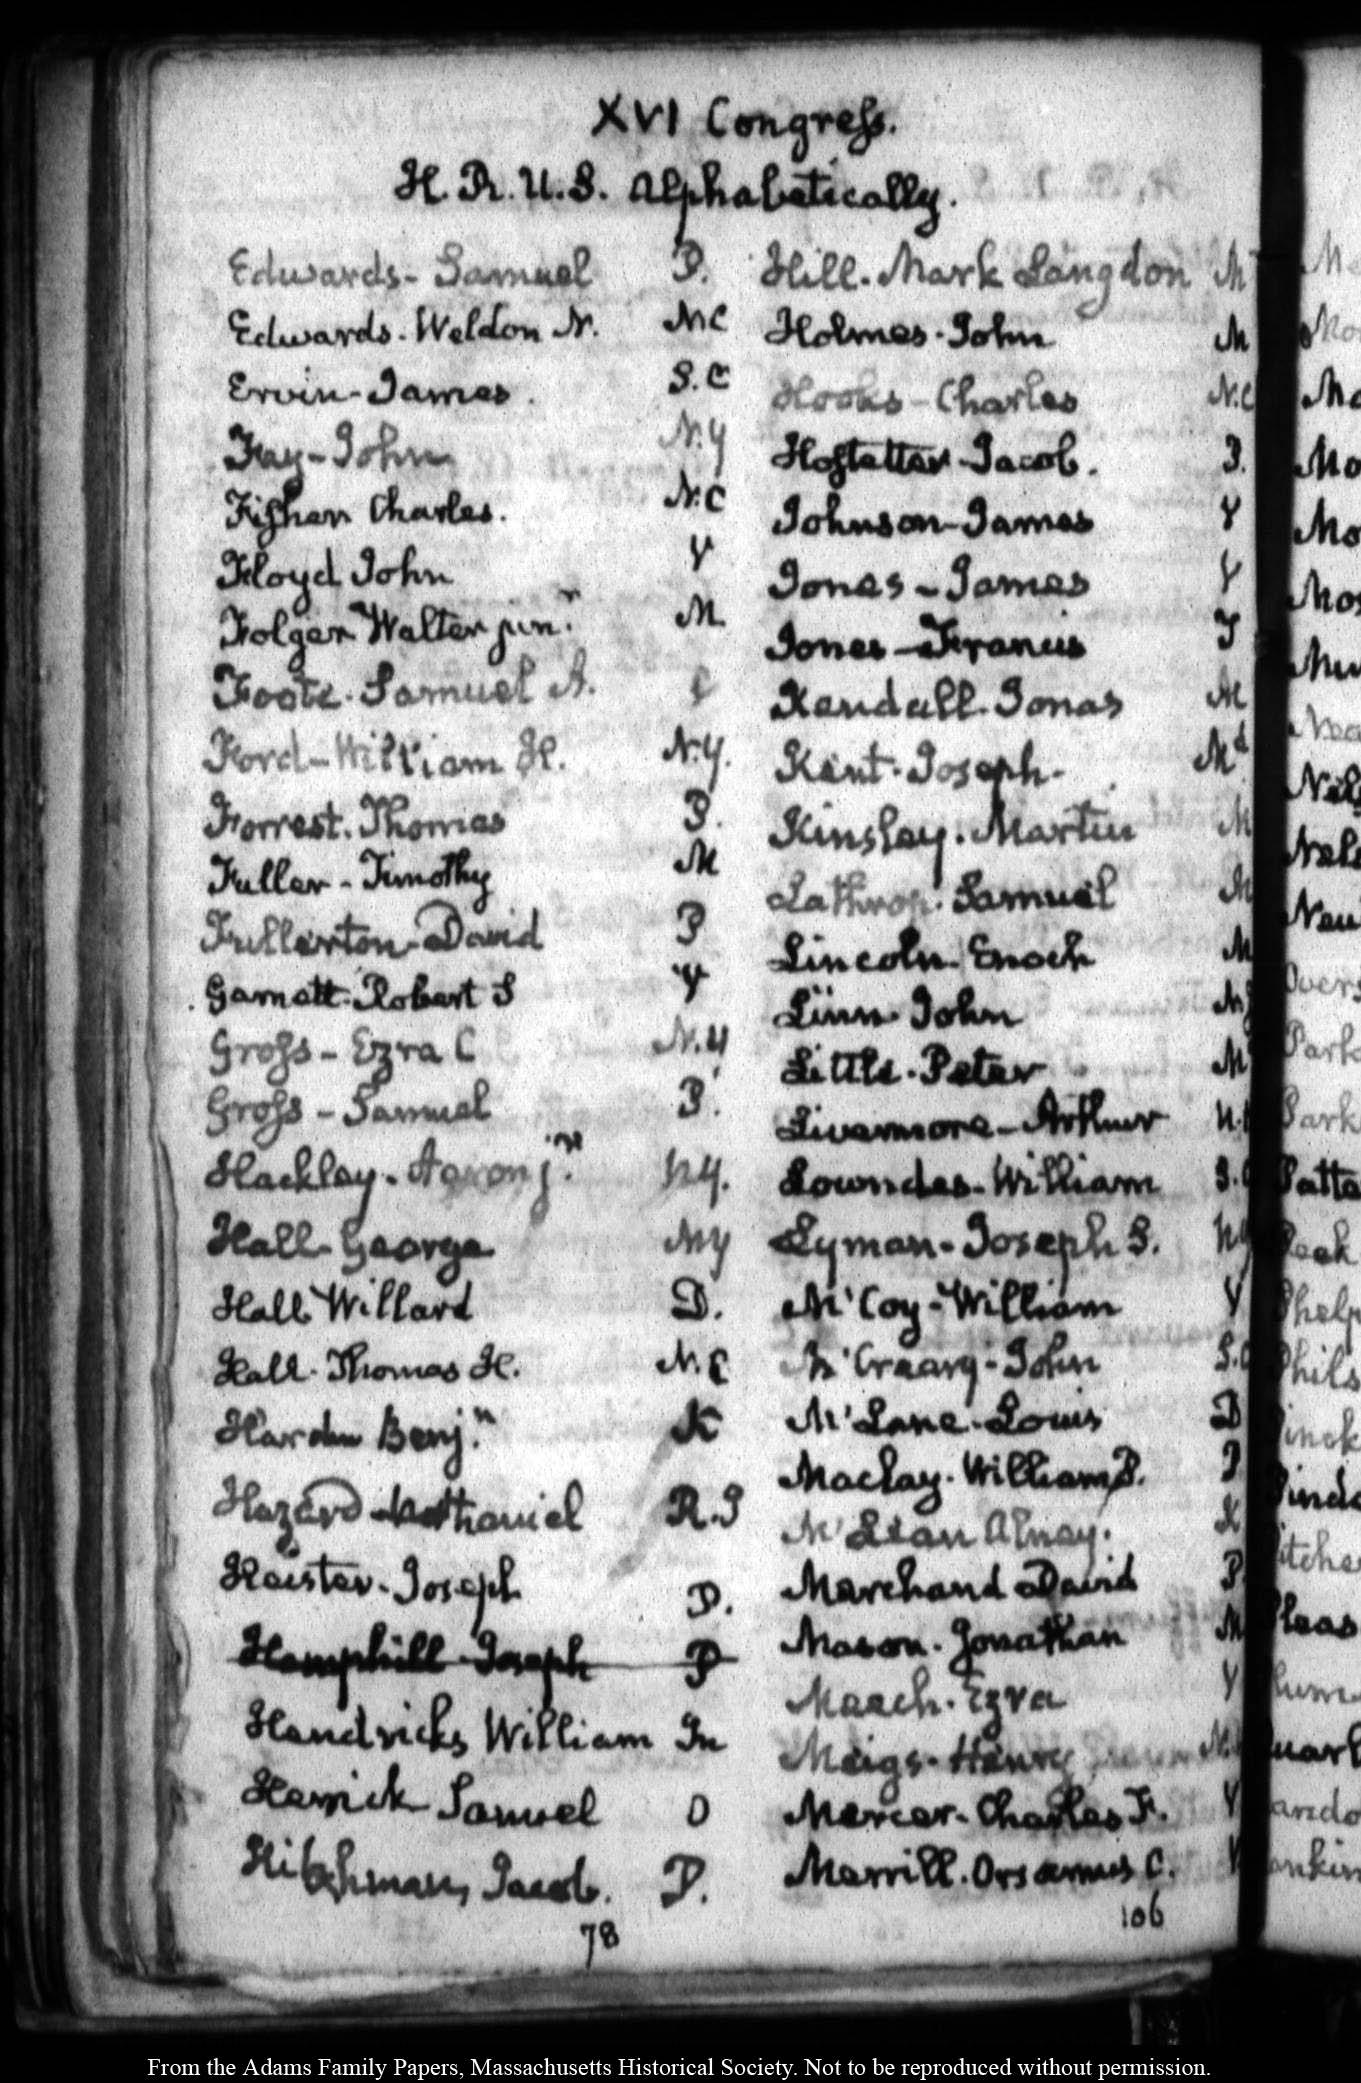 XVI Congress.
H. R. U. S. Alphabetically.
Edwards - Samuel P.
Edwards - Weldon N. N.C
Ervin - James. S.C
Fay - John N.Y
Fisher Charles. N.C
Floyd John V
Folger Walter junr. M.
Foote. Samuel A. C
Ford - William H. N.Y.
Forrest. Thomas P.
Fuller - Timothy M
Fullerton - David P
Garnett. Robert S V
Gross - Ezra C N.Y
Gross - Samuel P.
Hackley - Aaron jr. NY.
Hall - George NY
Hall Willard D.
Hall - Thomas H. N.C
Hardin Benjn. K
Hazard - Nathaniel R.I
Heister - Joseph P.
Hemphill - Joseph P
Hendricks William In
Herrick Samuel O
Hibshman, Jacob. P.
78
Hill. Mark Langdon M
Holmes - John M
Hooks - Charles N.C
Hostetter - Jacob. P.
Johnson - James V
Jones - James V
Jones - Francis T
Kendall - Jonas M
Kent - Joseph - Md.
Kinsley. Martin M
Lathrop. Samuel M
Lincoln - Enoch M
Linn - John NJ
Little. Peter M
Livermore - Arthur N.
Lowndes - William S.C
Lyman - Joseph S. NY
M'Coy - William V
M'Creary - John S.C
M'Lane - Louis D
Maclay - William P. P
M'Lean Alney. K
Marchand David P
Mason - Jonathan M
Meech - Ezra V
Meigs - Henry N.
Mercer - Charles F. V
Merrill - Orsamus C. V
106
From the Adams Family Papers, Massachusetts Historical Society. Not to be reproduced without permission.